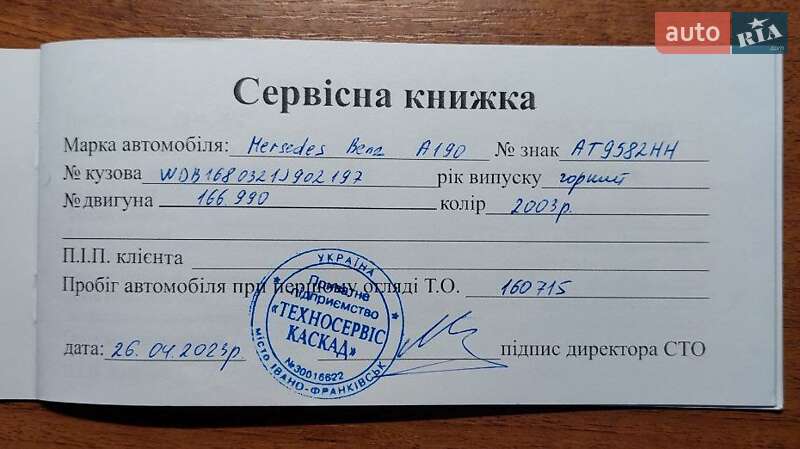 auto RIA .com
Сервісна книжка
Марка автомобіля: Mersedes Benz A190 № знак AT9582HH
№ кузова WDB1680321J902197 рік випуску горний
№ двигуна 166.990 колір 2003р.
П.І.П. клієнта
Пробіг автомобіля при першому огляді Т.О. 160715
дата: 26.04.2023р. підпис директора СТО
УКРАЇНА
Приватне
підприємство
«ТЕХНОСЕРВІС
КАСКАД»
№30016622
місто ІВАНО-ФРАНКІВСЬК